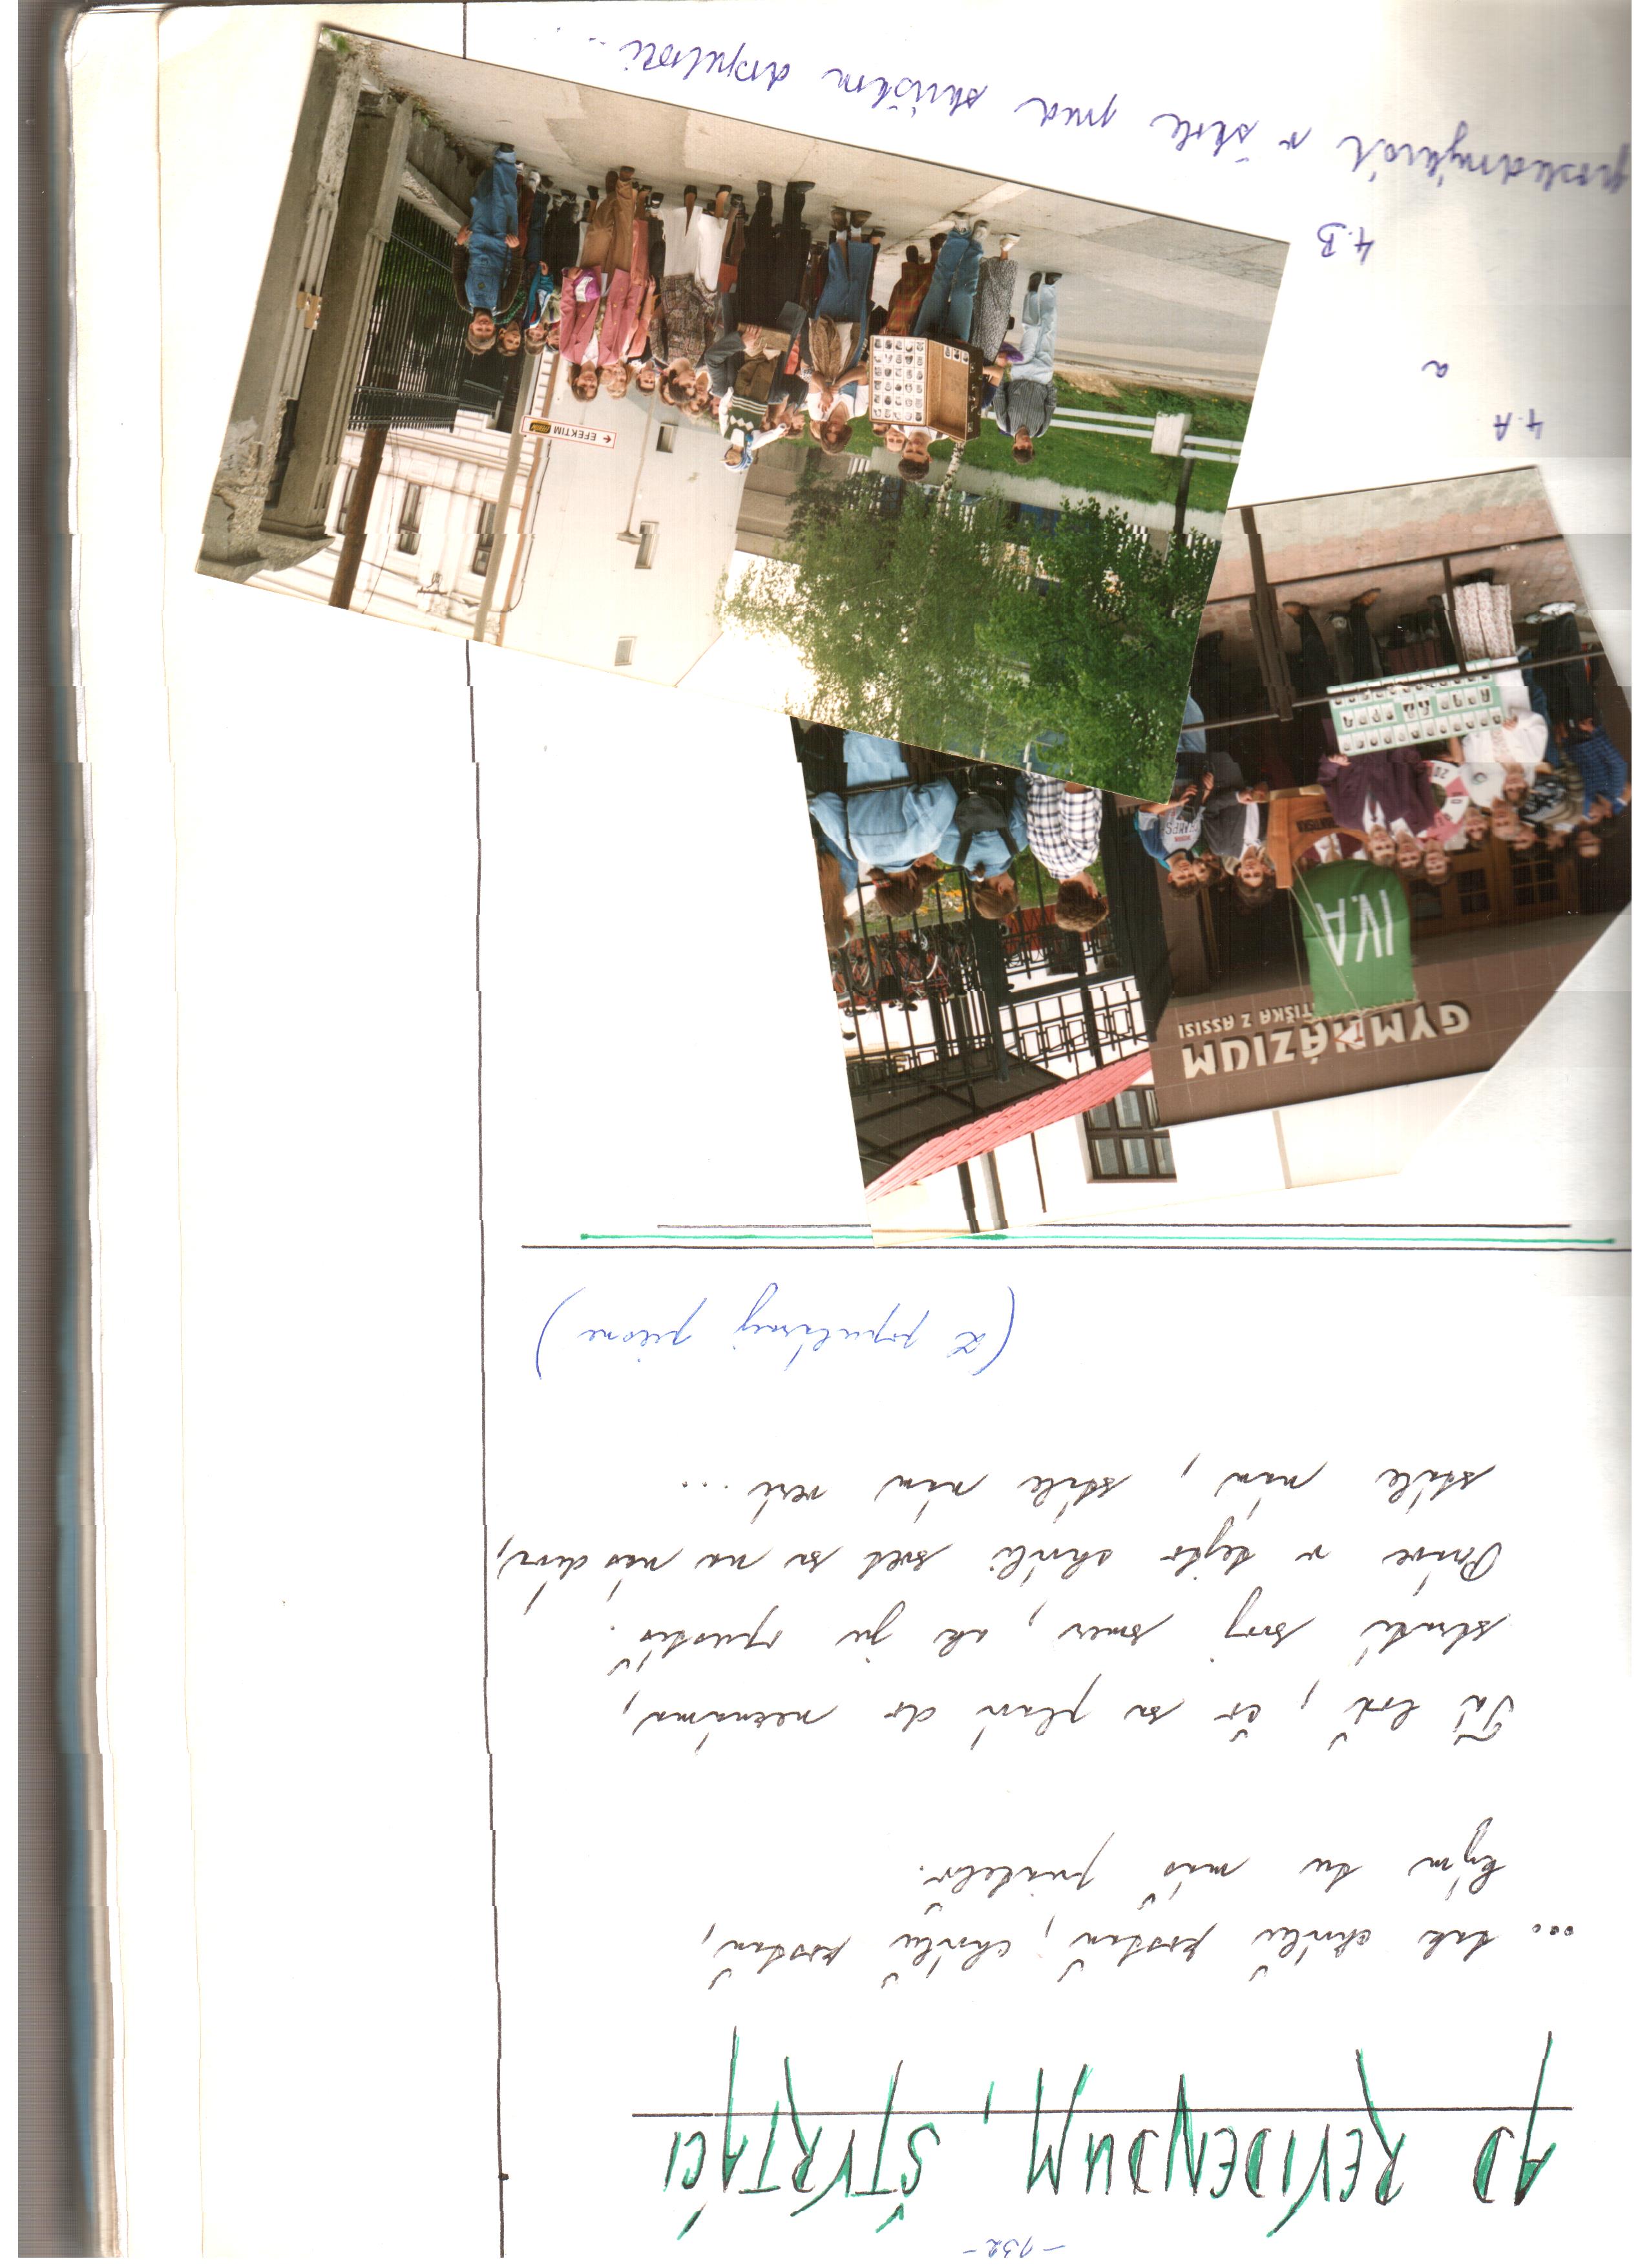 - 132 -
AD REVIDENDUM, ŠTVRTÁCI
... tak chvíľu zostaň, chvíľu zostaň,
kým tu máš priateľov.
Tá loď, čo sa plaví do neznáma,
stratí svoj smer, ak ju opustíš.
Práve v tejto chvíli svet sa na nás díva,
stále nám, stále nám verí ...
(Z populárnej piesne)
GYMNÁZIUM
TIŠKA Z ASSISI
IV.A
20
EFEKTIM
4.A
a
4.B
poslednýkrát v škole pred skúškou dospelosti...